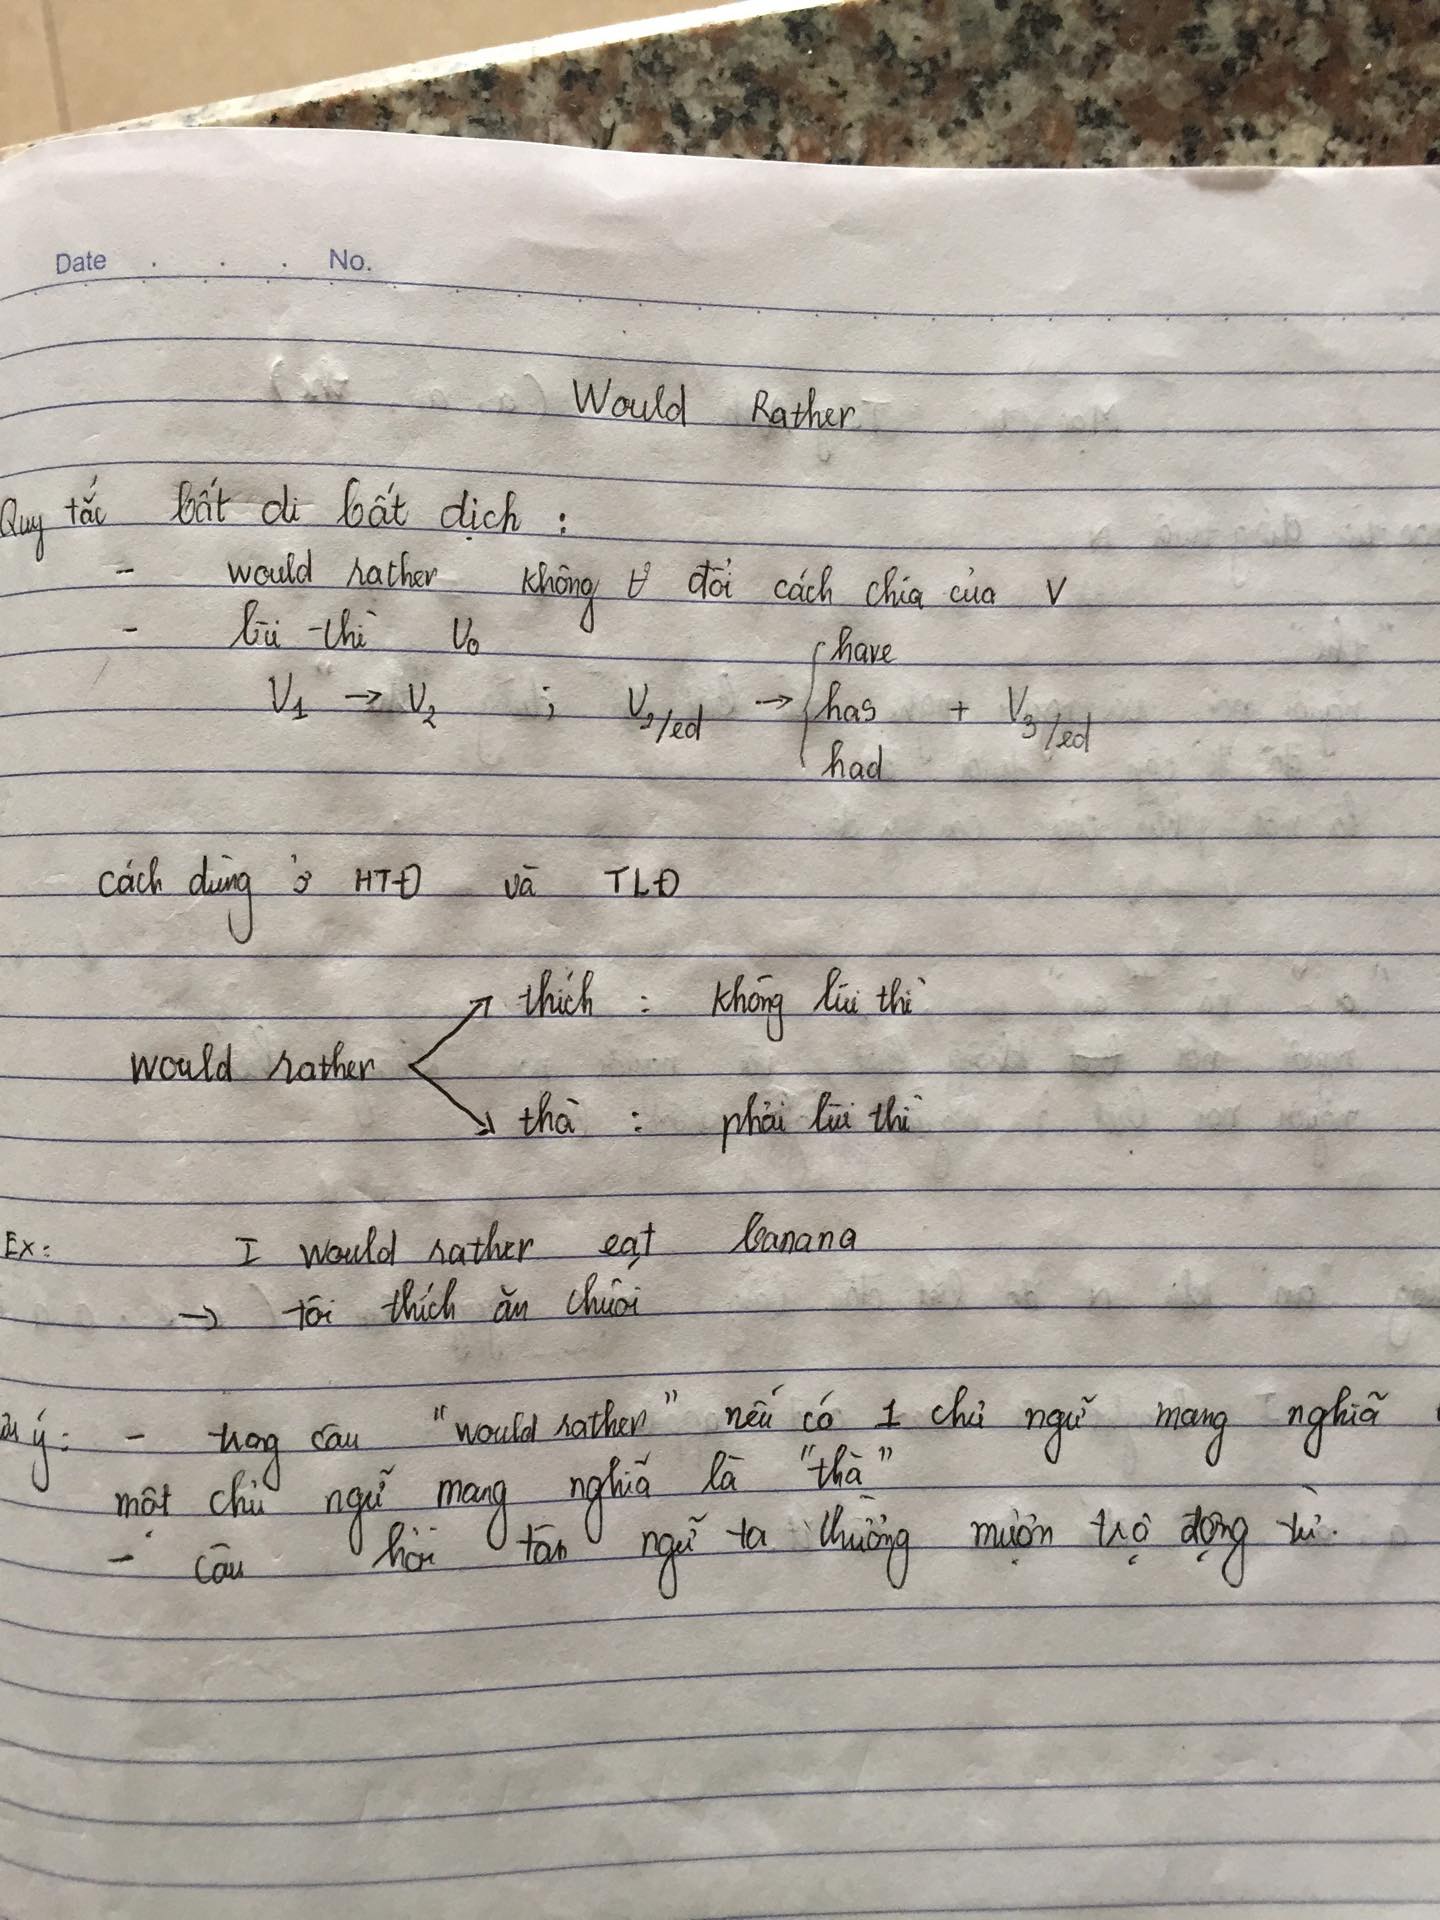 Date . . . No.
Would Rather
Quy tắc bất di bất dịch :
- would rather không đổi cách chia của V
- lùi thì V₀
V₁ → V₂ ; V₂/ed → { have
has + V₃/ed
had
cách dùng ở HTĐ và TLĐ
thích : không lùi thì
would rather
thà : phải lùi thì
Ex: I would rather eat banana
→ tôi thích ăn chuối
ý: - trog câu "would rather" nếu có 1 chủ ngữ mang nghĩa
một chủ ngữ mang nghĩa là "thà"
- câu hỏi tân ngữ ta thường mượn trợ động từ.